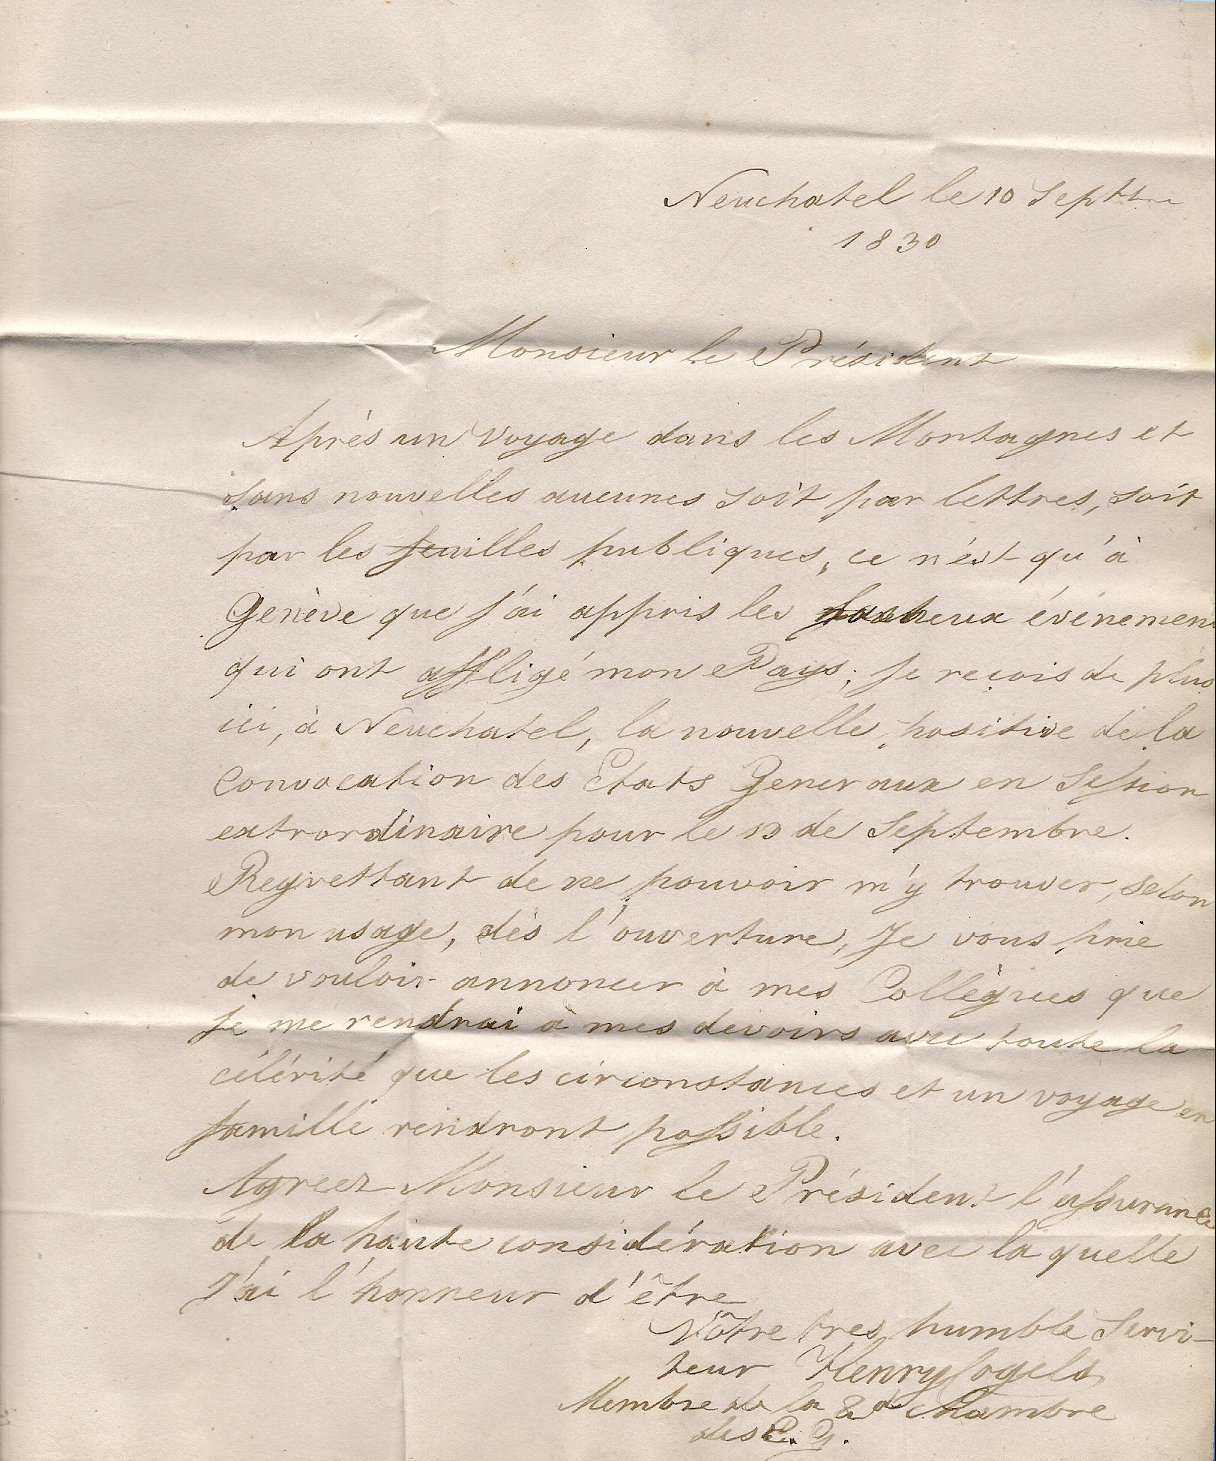 Neuchatel le 10 Septbre
1830
Monsieur le Président
Après un voyage dans les Montagnes et
sans nouvelles aucunes soit par lettres, soit
par les feuilles publiques, ce n'est qu'à
Genève que j'ai appris les facheux événemen
qui ont affligé mon Pays; Je reçois de plus
ici, à Neuchatel, la nouvelle positive de la
Convocation des Etats Generaux en Session
extrordinaire pour le 13 de Septembre.
Regrettant de ne pouvoir m'y trouver, selon
mon usage, dès l'ouverture, Je vous prie
de vouloir annoncer à mes Collègues que
je me rendrai à mes devoirs avec toute la
célérité que les circonstances et un voyage en
famille rendront possible.
Agreez Monsieur le Président l'assurance
de la haute considération avec la quelle
J'ai l'honneur d'être
Vôtre tres humble Servi-
teur Henry Cogels
Membre de la 2de Chambre
des E. G.